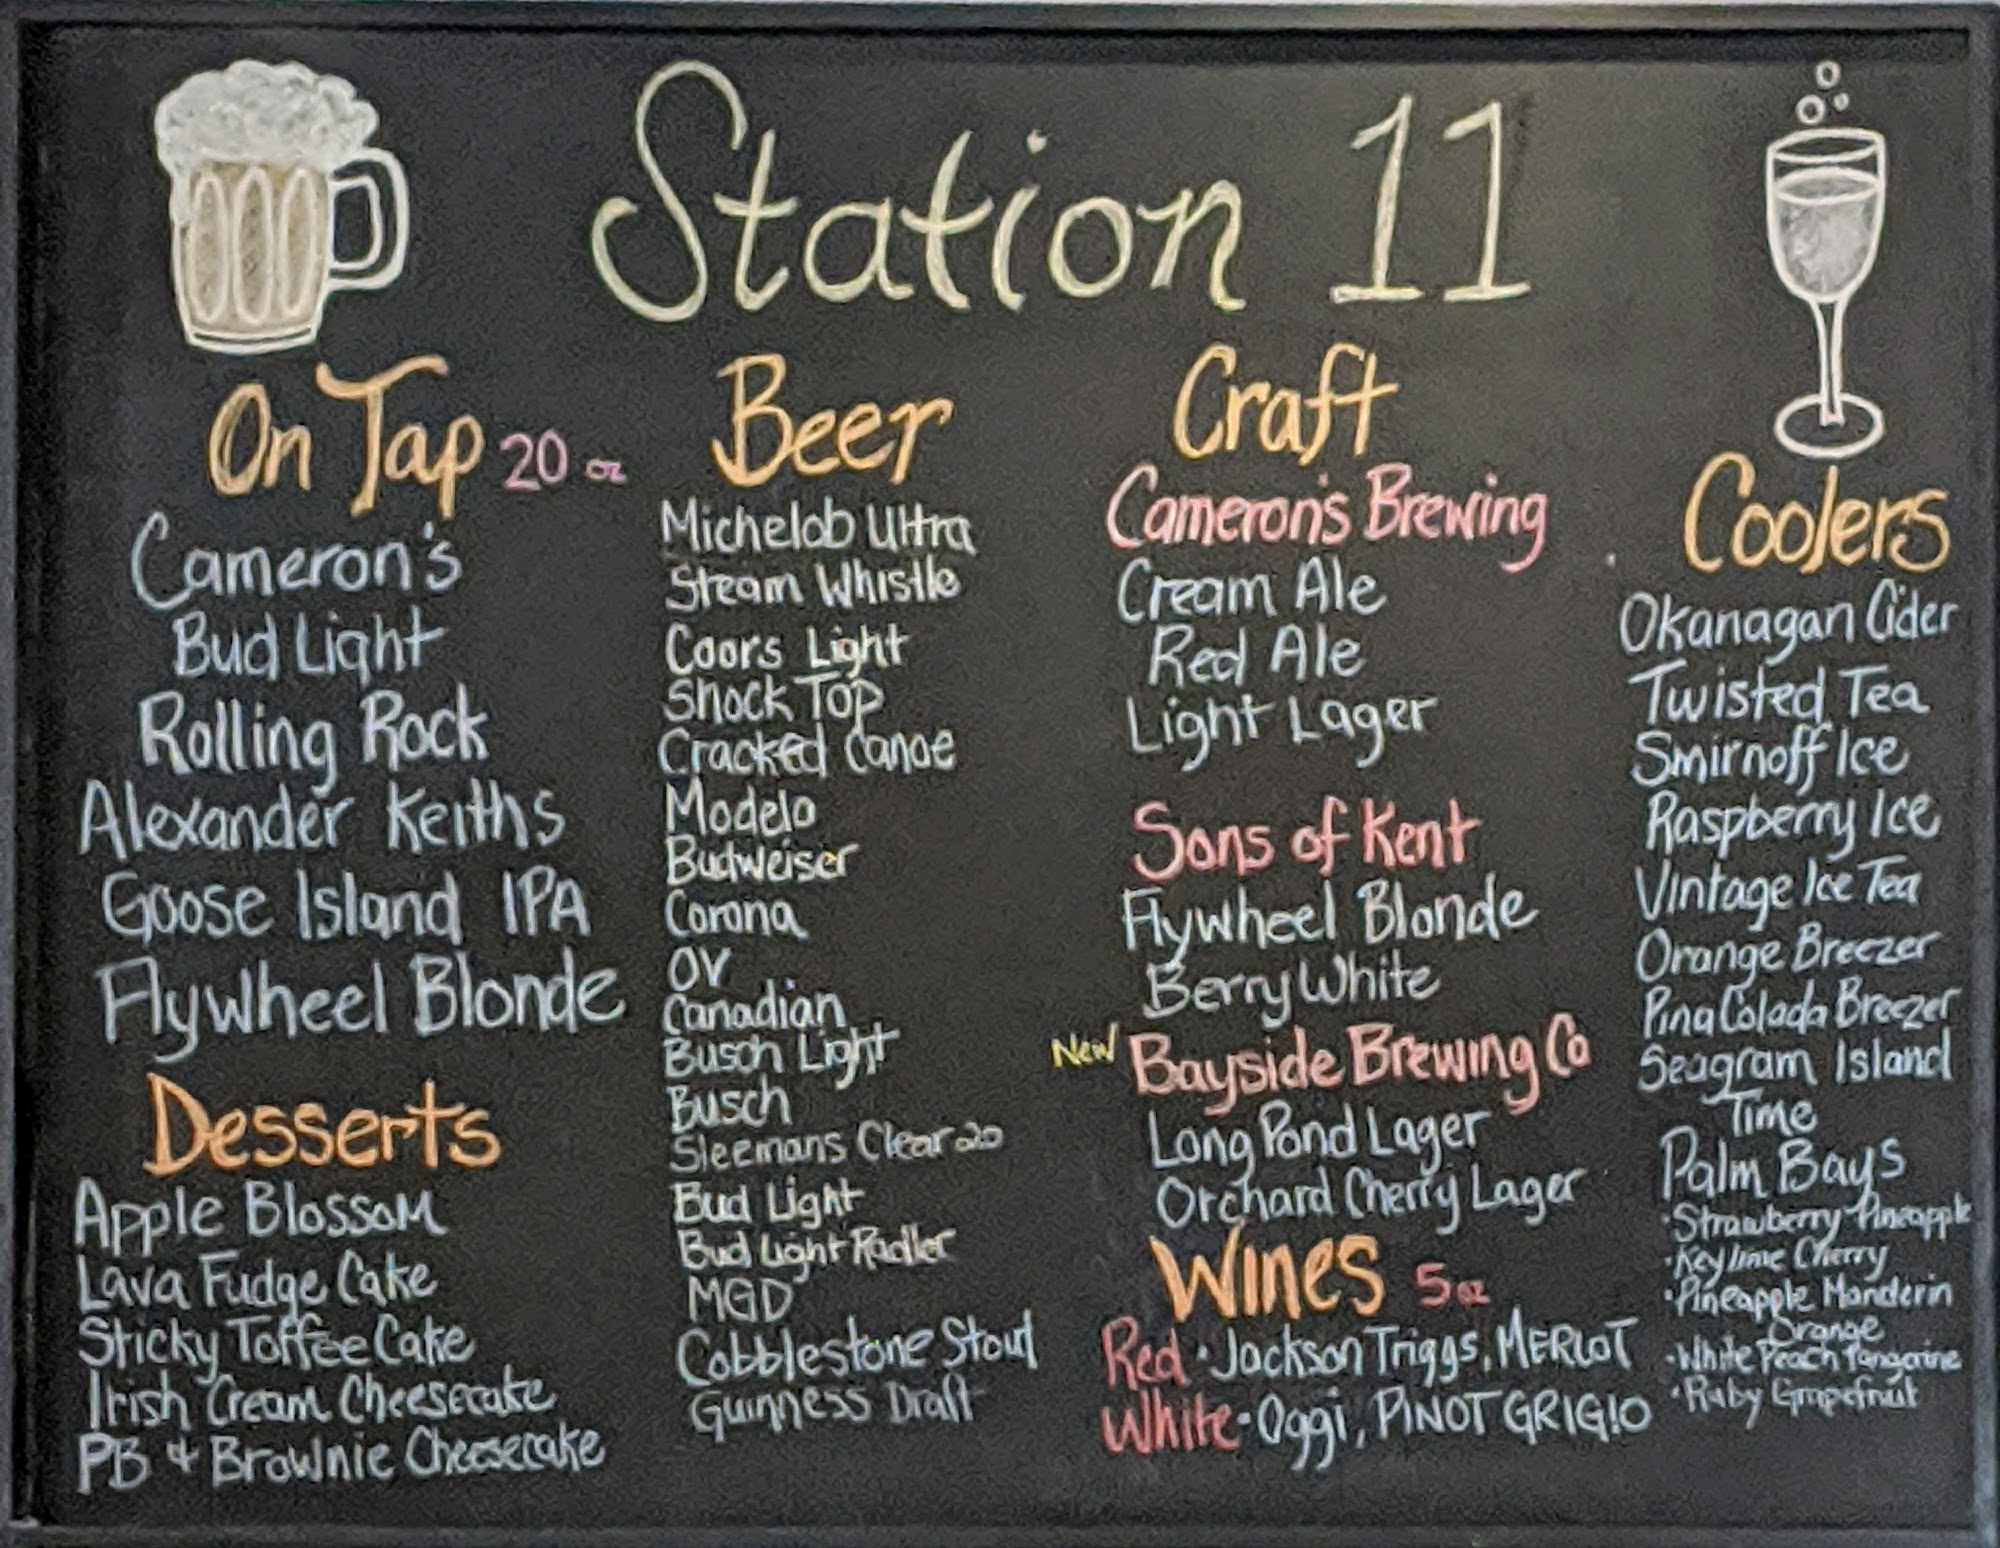 Station 11
On Tap 20 oz
Cameron's
Bud Light
Rolling Rock
Alexander Keiths
Goose Island IPA
Flywheel Blonde
Desserts
Apple Blossom
Lava Fudge Cake
Sticky Toffee Cake
Irish Cream Cheesecake
PB & Brownie Cheesecake
Beer
Michelob Ultra
Steam Whistle
Coors Light
Shock Top
Cracked Canoe
Modelo
Budweiser
Corona
OV
Canadian
Busch Light
Busch
Sleemans Clear 2.0
Bud Light
Bud Light Radler
MGD
Cobblestone Stout
Guinness Draft
Craft
Cameron's Brewing
Cream Ale
Red Ale
Light Lager
Sons of Kent
Flywheel Blonde
Berry White
New Bayside Brewing Co
Long Pond Lager
Orchard Cherry Lager
Wines 5 oz
Red · Jackson Triggs, MERLOT
White · Oggi, PINOT GRIGIO
Coolers
Okanagan Cider
Twisted Tea
Smirnoff Ice
Raspberry Ice
Vintage Ice Tea
Orange Breezer
Pina Colada Breezer
Seagram Island
Time
Palm Bays
· Strawberry Pineapple
· Key lime Cherry
· Pineapple Manderin
Orange
· White Peach Tangerine
· Ruby Grapefruit